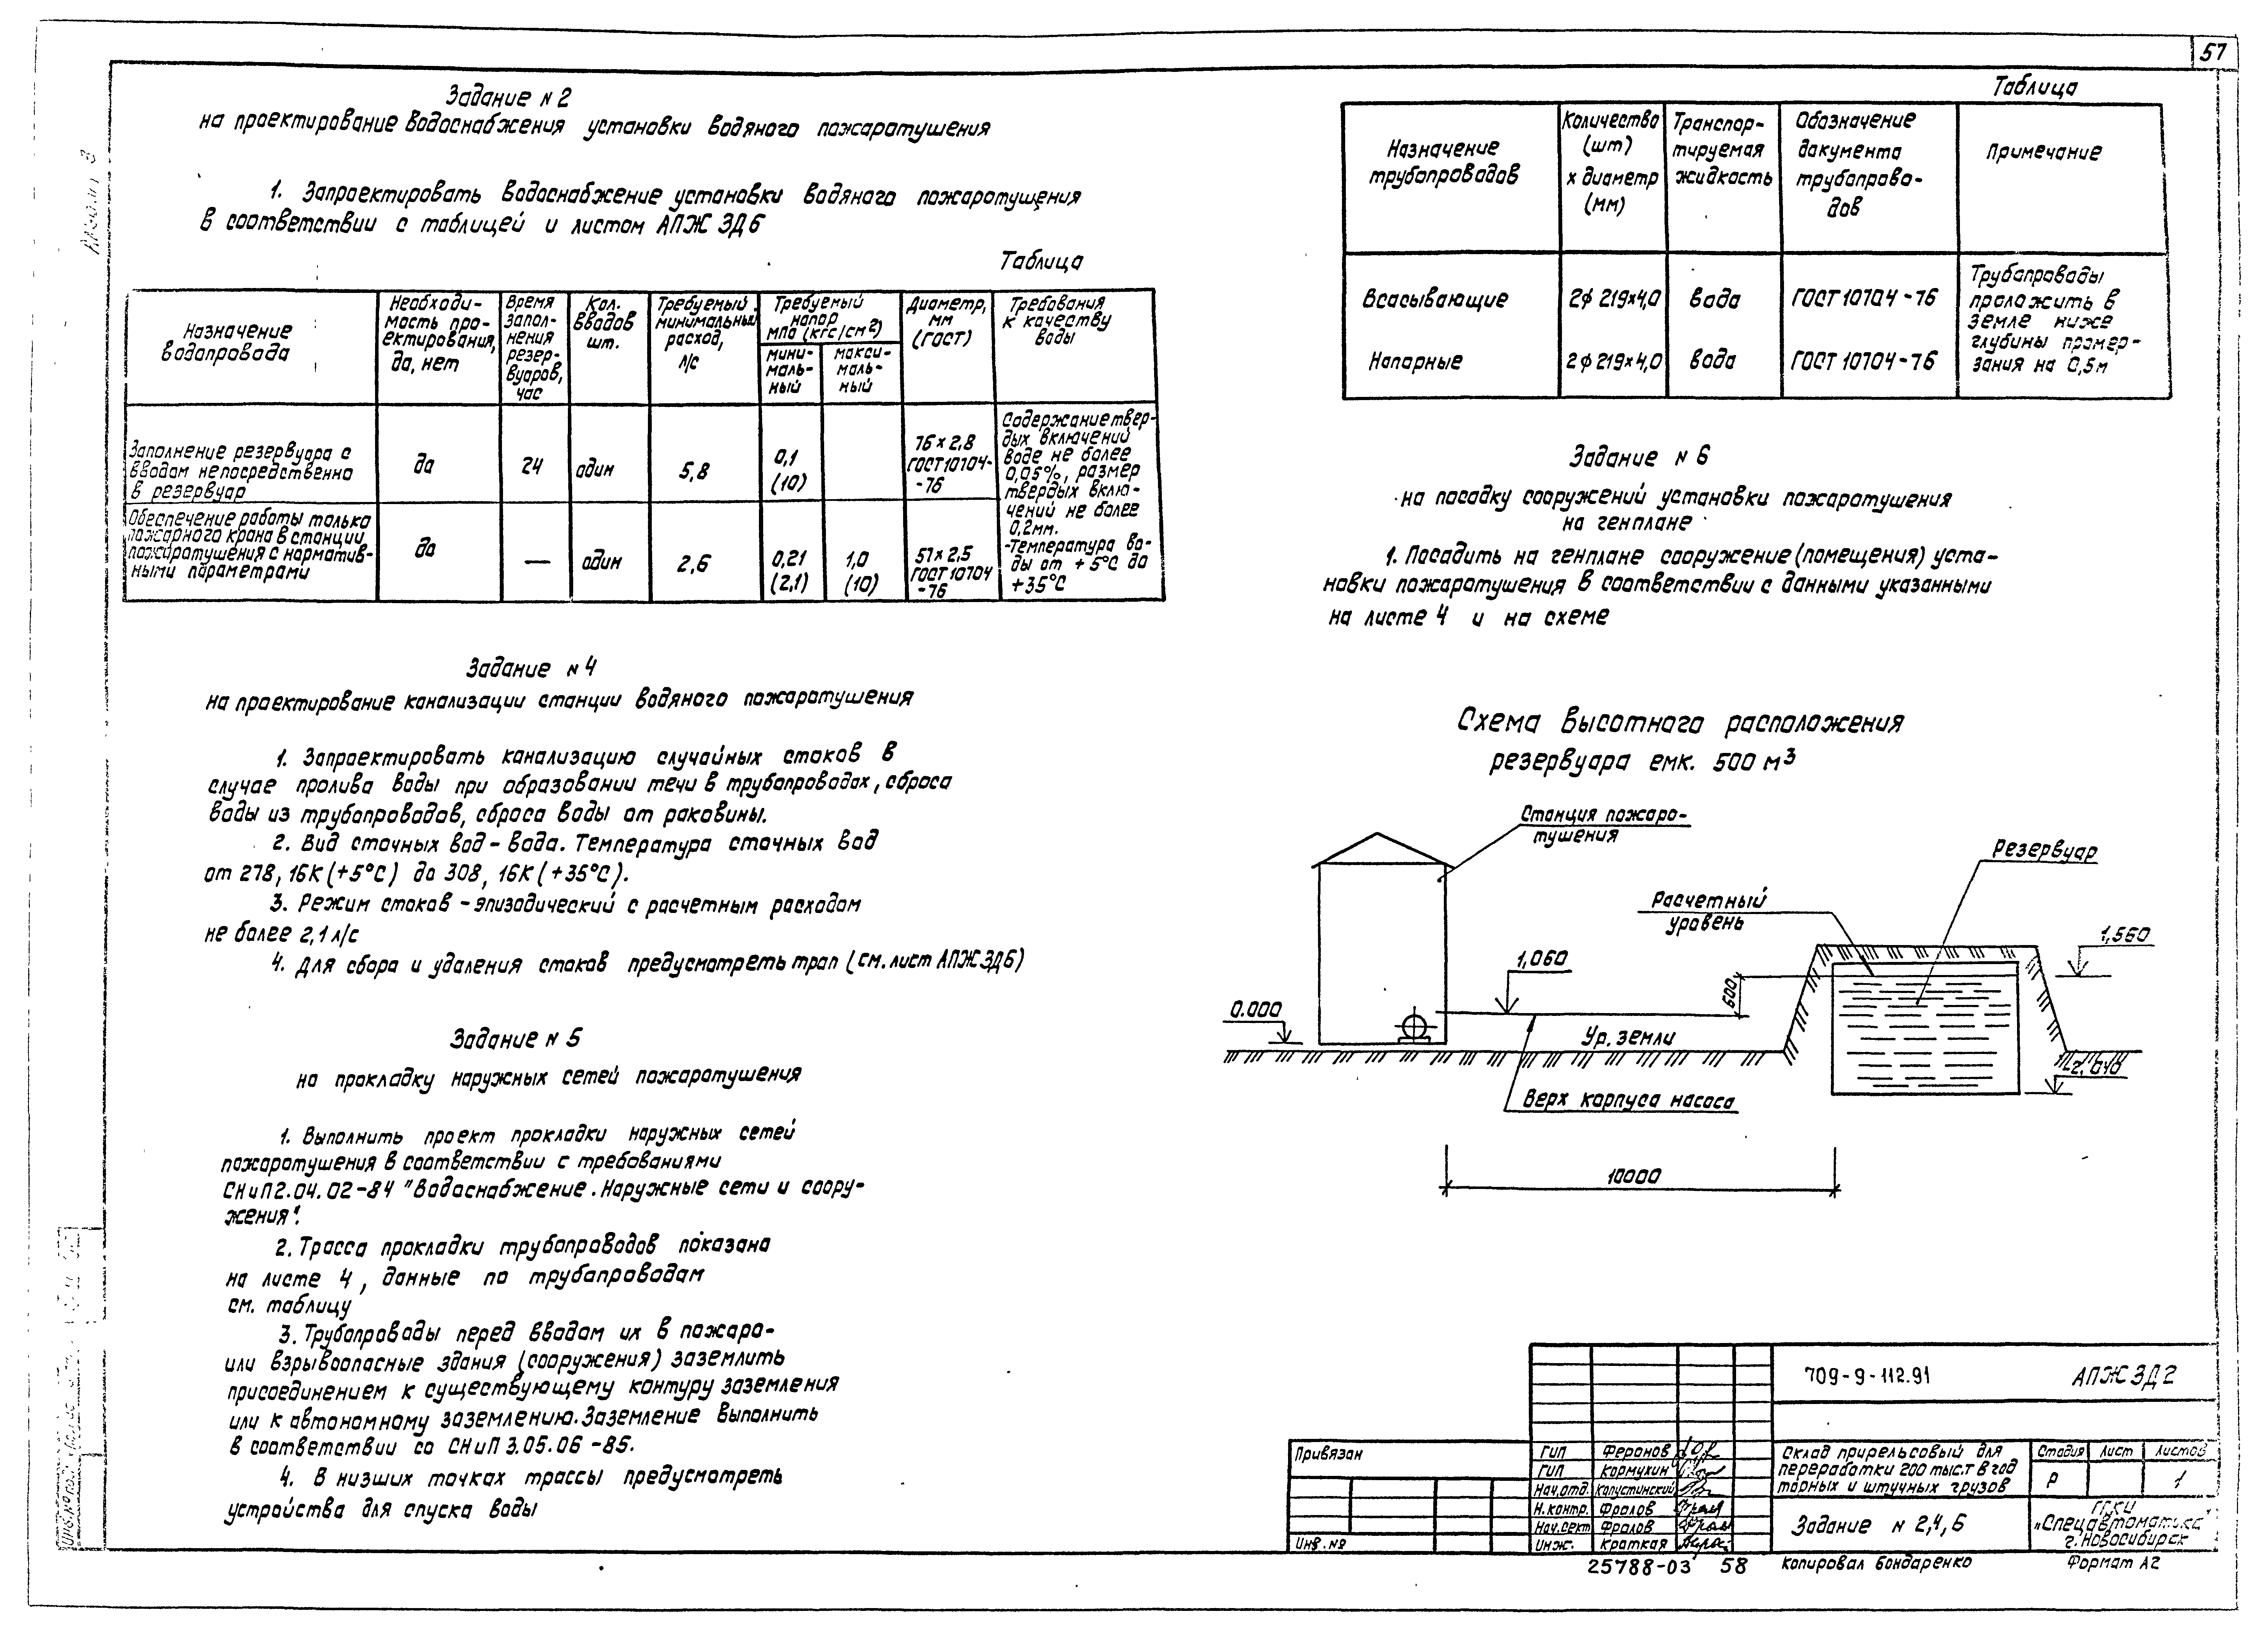 57
Альбом 3
Задание №2
на проектирование водоснабжения установки водяного пожаротушения
1. Запроектировать водоснабжение установки водяного пожаротушения
в соответствии с таблицей и листом АПЖ ЗД6
Таблица
Назначение
водопровода
Необходи-
мость про-
ектирования,
да, нет
Время
запол-
нения
резер-
вуаров,
час
Кол.
вводов
шт.
Требуемый
минимальный
расход,
л/с
Требуемый
напор
мПа (кгс/см²)
мини-
маль-
ный
макси-
маль-
ный
Диаметр,
мм
(ГОСТ)
Требования
к качеству
воды
Заполнение резервуара с
вводом непосредственно
в резервуар
да
24
один
5,8
0,1
(10)
76×2,8
ГОСТ10704-
-76
Содержание твер-
дых включений
воде не более
0,05%, размер
твердых вклю-
чений не более
0,2мм.
-Температура во-
ды от +5°С до
+35°С
Обеспечение работы только
пожарного крана в станции
пожаротушения с норматив-
ными параметрами
да
—
один
2,6
0,21
(2,1)
1,0
(10)
57×2,5
ГОСТ10704
-76
Задание №4
на проектирование канализации станции водяного пожаротушения
1. Запроектировать канализацию случайных стоков в
случае пролива воды при образовании течи в трубопроводах, сброса
воды из трубопроводов, сброса воды от раковины.
2. Вид сточных вод-вода. Температура сточных вод
от 278,16К (+5°С) до 308,16К (+35°С).
3. Режим стоков-эпизодический с расчетным расходом
не более 2,1 л/с
4. Для сбора и удаления стоков предусмотреть трап (см. лист АПЖ ЗД6)
Задание №5
на прокладку наружных сетей пожаротушения
1. Выполнить проект прокладки наружных сетей
пожаротушения в соответствии с требованиями
СНиП2.04.02-84 "Водоснабжение. Наружные сети и соору-
жения".
2. Трасса прокладки трубопроводов показана
на листе 4, данные по трубопроводам
см. таблицу
3. Трубопроводы перед вводом их в пожаро-
или взрывоопасные здания (сооружения) заземлить
присоединением к существующему контуру заземления
или к автономному заземлению. Заземление выполнить
в соответствии со СНиП 3.05.06-85.
4. В низших точках трассы предусмотреть
устройства для спуска воды
Таблица
Назначение
трубопроводов
Количество
(шт)
х диаметр
(мм)
Транспор-
тируемая
жидкость
Обозначение
документа
трубопрово-
дов
Примечание
Всасывающие
2ф 219×4,0
вода
ГОСТ 10704-76
Трубопроводы
проложить в
земле ниже
глубины промер-
зания на 0,5м
Напорные
2ф 219×4,0
вода
ГОСТ 10704-76
Задание №6
на посадку сооружений установки пожаротушения
на генплане
1. Посадить на генплане сооружение (помещения) уста-
новки пожаротушения в соответствии с данными указанными
на листе 4 и на схеме
Схема высотного расположения
резервуара емк. 500 м³
Станция пожаро-
тушения
Резервуар
Расчетный
уровень
1,560
1,060
600
0.000
Ур. земли
Верх корпуса насоса
10000
709-9-112.91
АПЖ ЗД2
Привязан
Инв. №
ГИП Феронов
ГИП Кормухин
Нач.отд. Капустинский
Н.контр. Фролов
Нач.сект Фролов
Инж. Краткая
Склад прирельсовый для
переработки 200 тыс.т в год
тарных и штучных грузов
Стадия Лист Листов
Р 1
Задание №2,4,6
"Спецавтоматика"
г. Новосибирск
25788-03 58
Копировал Бондаренко
Формат А2